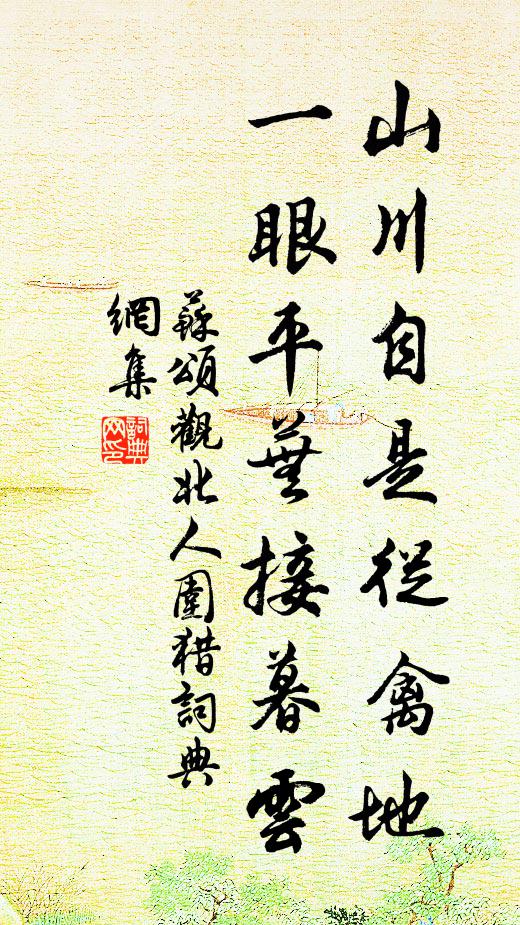 山川自是從禽地
一眼平蕪接暮雲
蘇頌觀北人圍猎詞典
網集
詞典网印